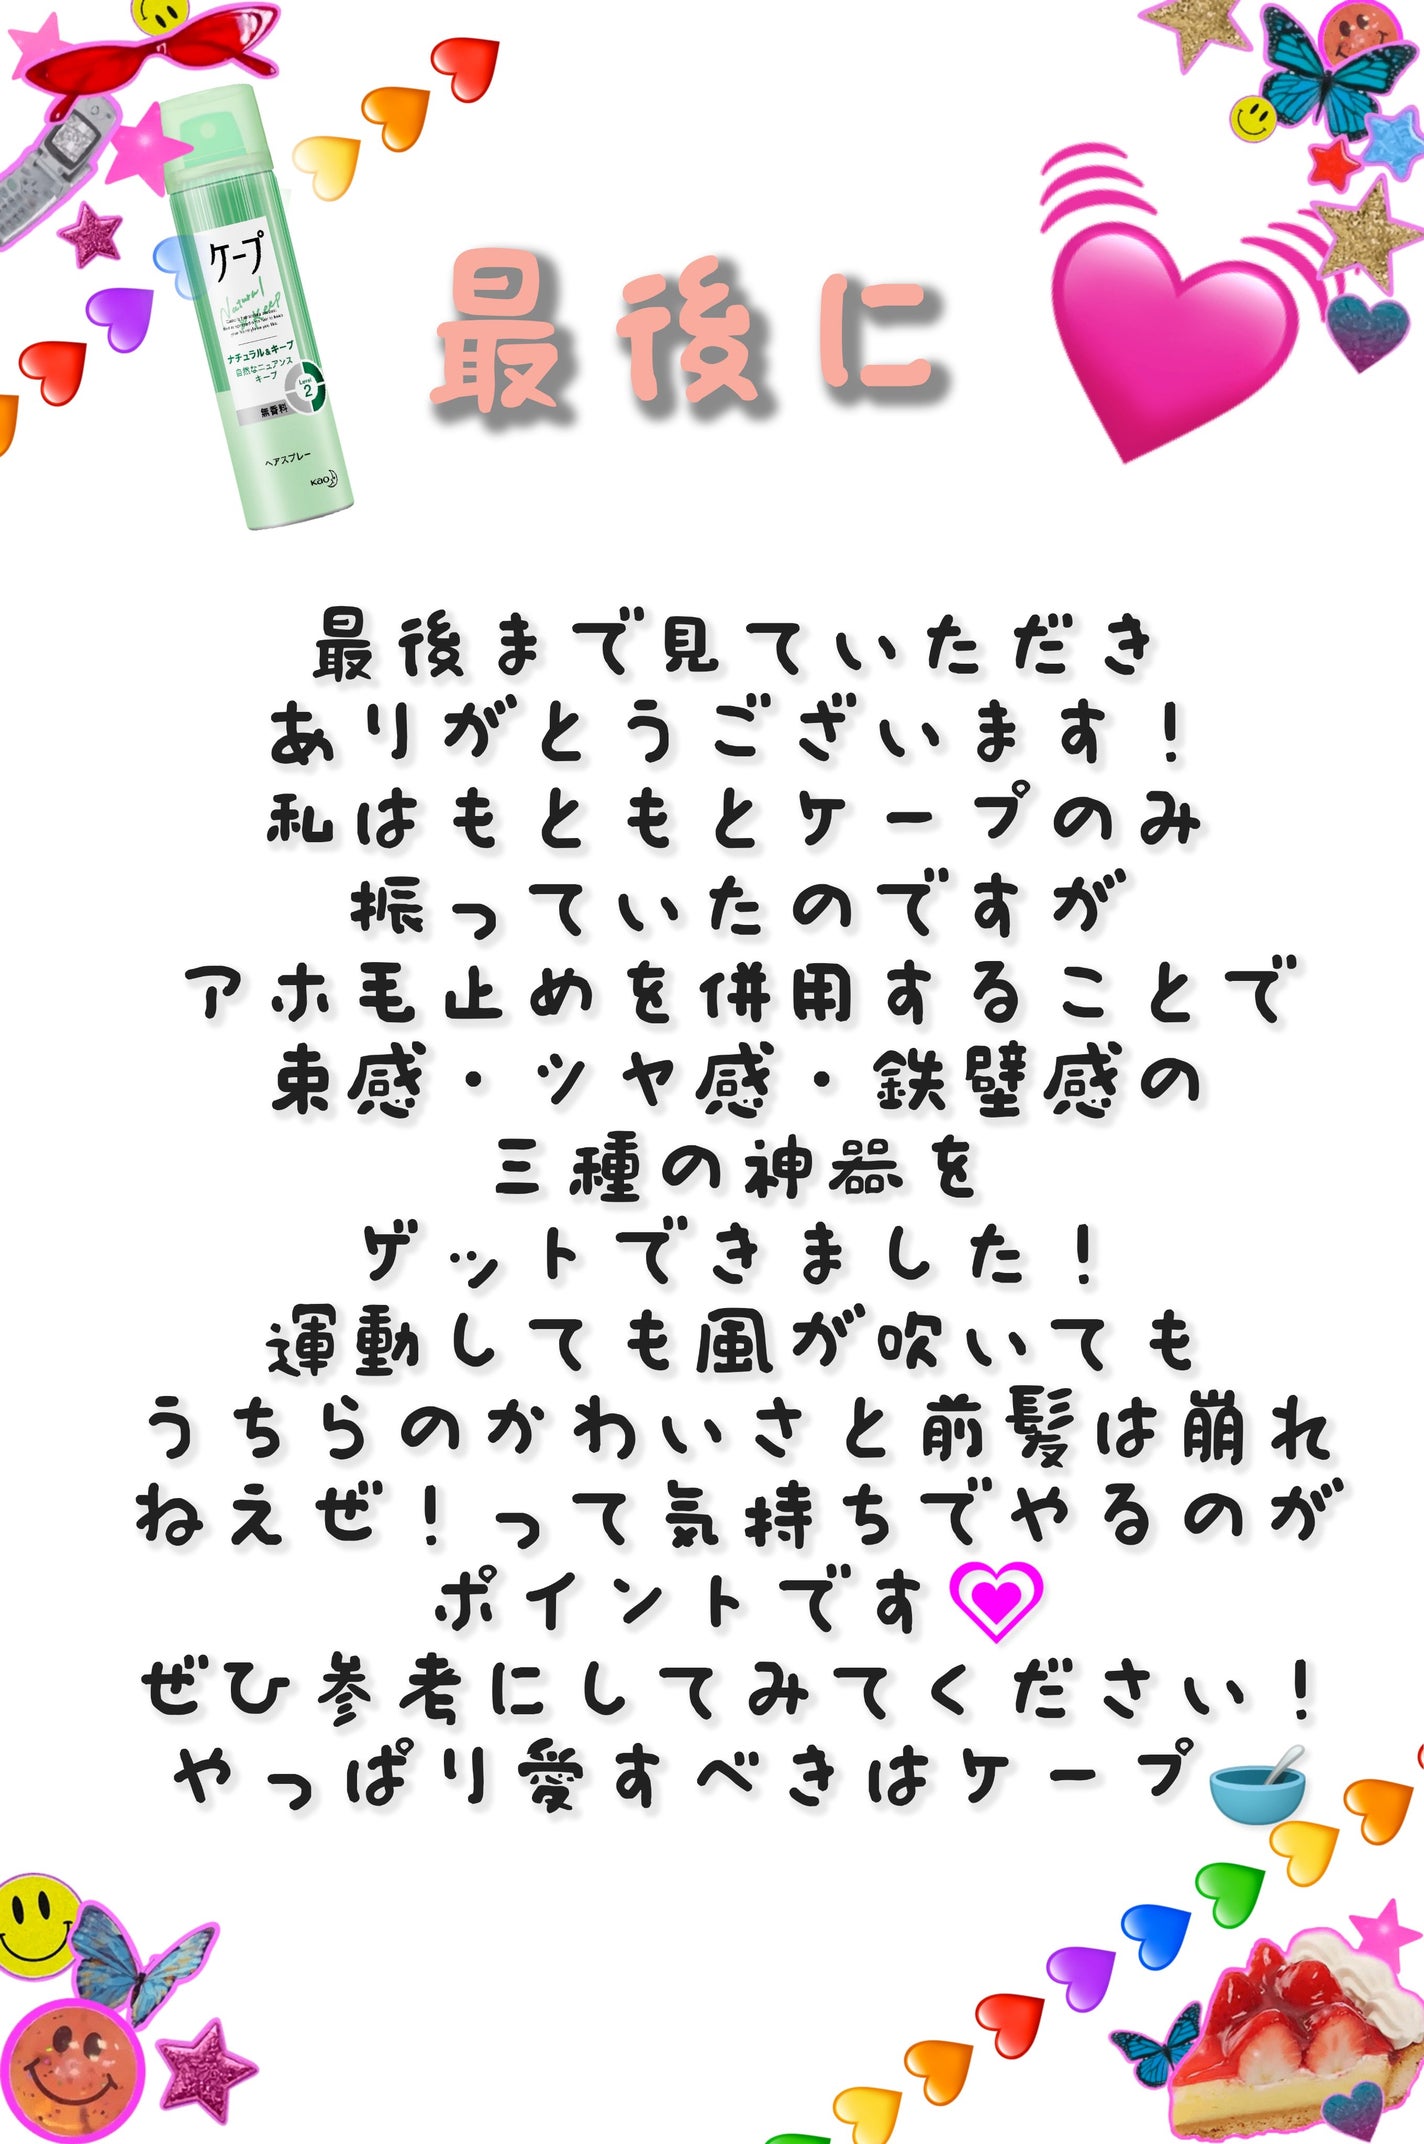 ケープ
Natural
& Keep
ナチュラル&キープ
自然なニュアンス
キープ
Level
2
無香料
ヘアスプレー
Kao
最後に
最後まで見ていただき
ありがとうございます！
私はもともとケープのみ
振っていたのですが
アホ毛止めを併用することで
束感・ツヤ感・鉄壁感の
三種の神器を
ゲットできました！
運動しても風が吹いても
うちらのかわいさと前髪は崩れ
ねえぜ！って気持ちでやるのが
ポイントです💗
ぜひ参考にしてみてください！
やっぱり愛すべきはケープ🥣